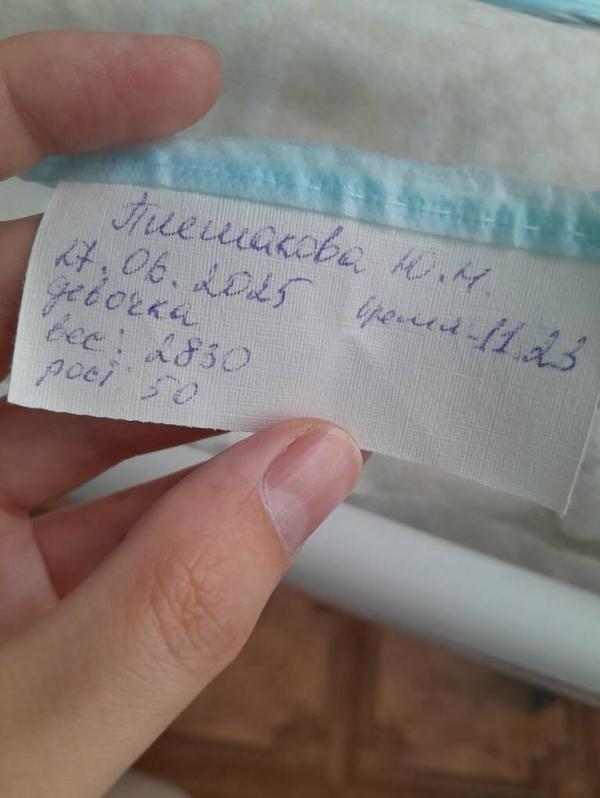 Плешакова Ю.Н.
27.06.2025 время-11.23
девочка
вес: 2830
рост 50